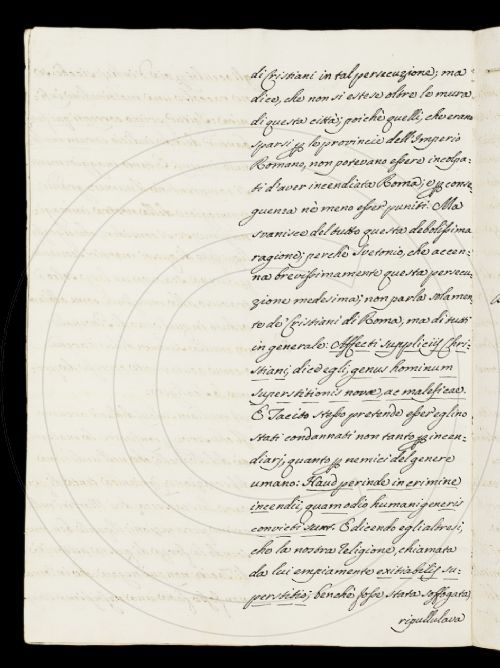 di Cristiani in tal persecuzione; ma
dice, che non si estese oltre le mura
di questa città; poichè quelli, che erano
sparsi per le provincie dell'Imperio
Romano, non potevano essere incolpa-
ti d'aver incendiata Roma; e per conse-
guenza nè meno esser puniti. Ma
svanisce del tutto questa debolissima
ragione; perchè Svetonio, che accen-
na brevissimamente questa persecu-
zione medesima; non parla solamen-
te de' Cristiani di Roma, ma di tutti
in generale: Affecti suppliciis Chri-
stiani, dic'egli, genus hominum
superstitionis novæ, ac maleficæ.
E Tacito stesso pretende esser eglino
stati condannati non tanto per incen-
diarj, quanto per nemici del genere
umano: Haud perinde in crimine
incendii, quam odio humani generis
convicti sunt. E dicendo egli altresì,
che la nostra Religione, chiamata
da lui empiamente exitiabilis su-
perstitio, benchè fosse stata soffogata,
ripullulava